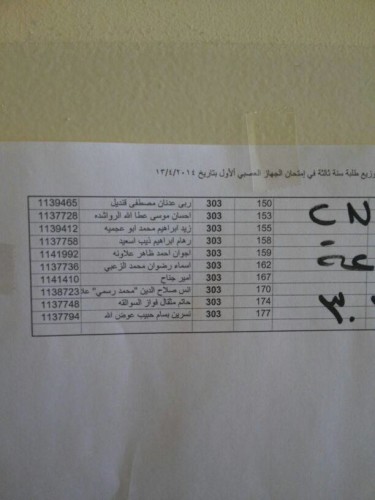 توزيع طلبة سنة ثالثة في إمتحان الجهاز العصبي الأول بتاريخ ١٣/٤/٢٠١٤
150 303 ربى عدنان مصطفى قنديل 1139465
153 303 احسان موسى عطا الله الرواشده 1137728
155 303 زيد ابراهيم محمد ابو عجميه 1139412
158 303 رهام ابراهيم ذيب اسعيد 1137758
159 303 اجوان احمد ظاهر علاونه 1141992
162 303 اسماء رضوان محمد الزعبي 1137736
167 303 امير جناح 1141410
170 303 انس صلاح الدين "محمد رسمي" علا 1138723
174 303 حاتم مثقال فواز الموالقه 1137748
177 303 نسرين بسام حبيب عوض الله 1137794